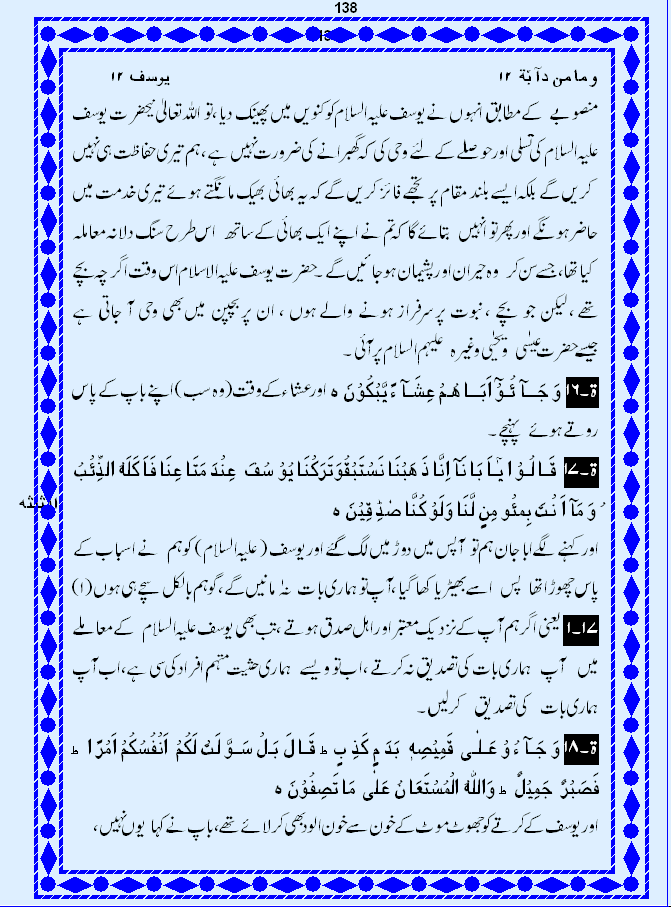 138
وما من دآبۃ ۱۲ یوسف ۱۲
منصوبے کے مطابق انہوں نے یوسف علیہ السلام کو کنویں میں پھینک دیا، تو اللہ تعالیٰ نے حضرت یوسف
علیہ السلام کی تسلی اور حوصلے کے لئے وحی کی کہ گھبرانے کی ضرورت نہیں ہے، ہم تیری حفاظت ہی نہیں
کریں گے بلکہ ایسے بلند مقام پر تجھے فائز کریں گے کہ یہ بھائی بھیک مانگتے ہوئے تیری خدمت میں
حاضر ہونگے اور پھر تو انہیں بتائے گا کہ تم نے اپنے ایک بھائی کے ساتھ اس طرح سنگ دلانہ معاملہ
کیا تھا، جسے سن کر وہ حیران اور پشیمان ہو جائیں گے۔ حضرت یوسف علیہ الاسلام اس وقت اگرچہ بچے
تھے، لیکن جو بچے، نبوت پر سرفراز ہونے والے ہوں، ان پر بچپن میں بھی وحی آ جاتی ہے
جیسے حضرت عیسٰی و یحیٰی وغیرہ علیہم السلام پر آئی۔
ۃ۔۱۶ وَ جَآ ئُوْٓ اَبَا ھُمْ عِشَآ ءً یَّبْکُوْنَ ہ اور عشاء کے وقت (وہ سب) اپنے باپ کے پاس
روتے ہوئے پہنچے۔
ۃ۔۱۷ قَا لُوْ ا یٰۤاَ بَا نَآ اِنَّا ذَ ھَبْنَا نَسْتَبِقُ وَتَرَکْنَا یُوْ سُفَ عِنْدَ مَتَا عِنَا فَاَ کَلَہُ الذِّئْبُ
وَ مَآ اَ نْتَ بِمئُو مِنٍ لَّنَا وَلَوْ کُنَّا صٰدِ قِیْنَ ہ
اور کہنے لگے ابا جان ہم تو آپس میں دوڑ میں لگ گئے اور یوسف (علیہ السلام) کو ہم نے اسباب کے
پاس چھوڑا تھا پس اسے بھیڑیا کھا گیا، آپ تو ہماری بات نہ مانیں گے، گو ہم بالکل سچے ہی ہوں (۱)
۱۷۔۱ یعنی اگر ہم آپ کے نزدیک معتبر اور اہل صدق ہوتے، تب بھی یوسف علیہ السلام کے معاملے
میں آپ ہماری بات کی تصدیق نہ کرتے، اب تو ویسے ہماری حثیت متہم افراد کی سی ہے، اب آپ
ہماری بات کی تصدیق کر لیں۔
ۃ۔۱۸ وَ جَآ ءُ وْ عَلٰی قَمِیْصِہٖ بِدَ مٍ کَذِ بٍ ط قَا لَ بَلْ سَوَّ لَتْ لَکُمْ اَنْفُسُکُمْ اَمْرًا ط
فَصَبْرٌ جَمِیْلٌ ط وَاللّٰہُ الْمُسْتَعَا نُ عَلٰی مَا تَصِفُوْنَ ہ
اور یوسف کے کرتے کو جھوٹ موٹ کے خون سے خون الود بھی کر لائے تھے، باپ نے کہا یوں نہیں،